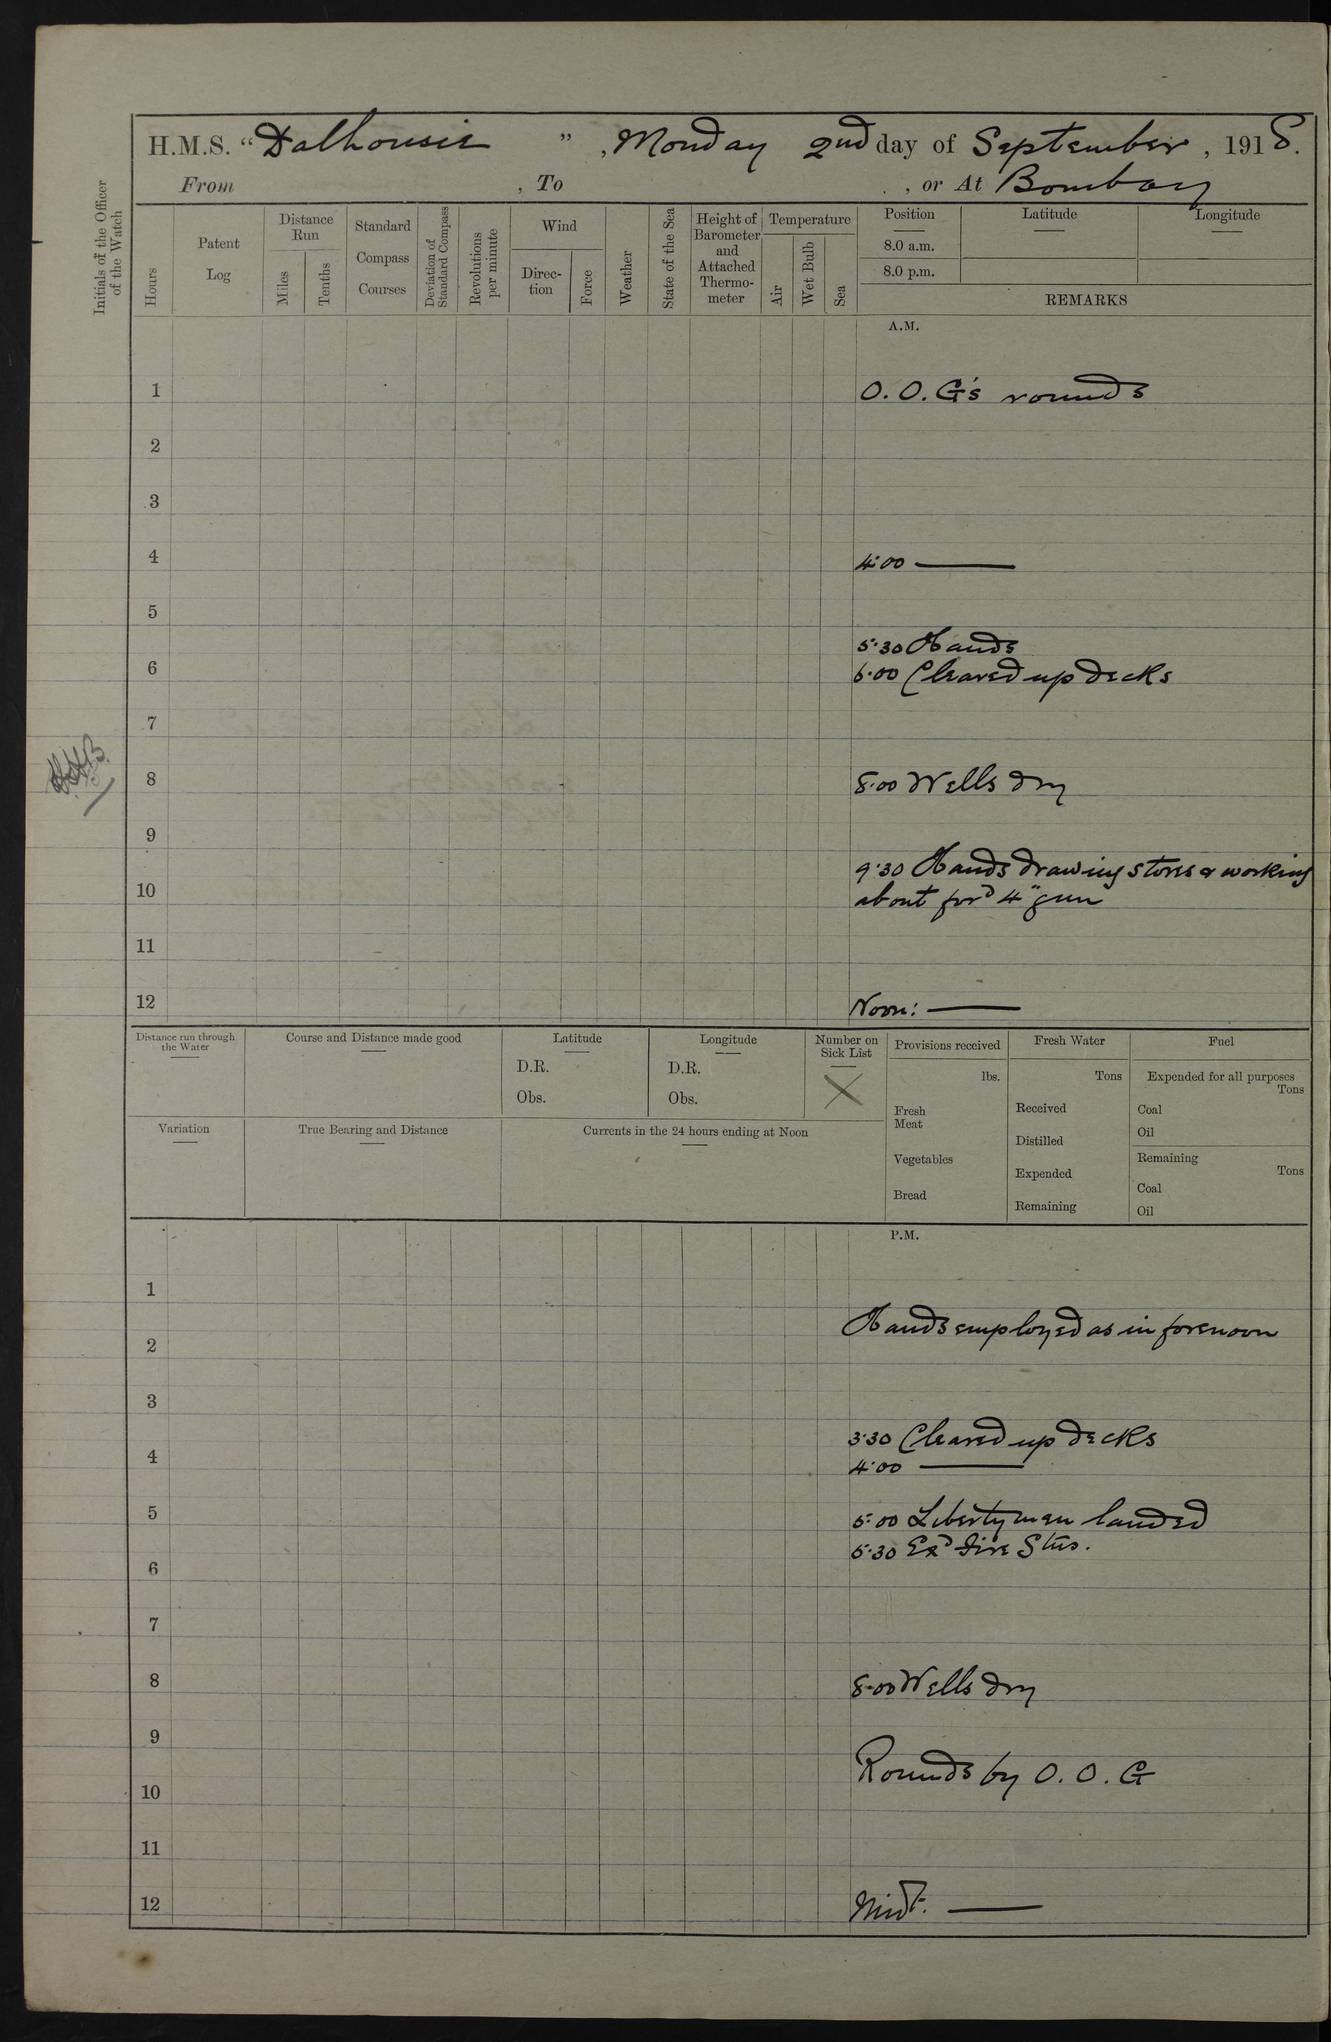 H.M.S. "Dalhousie", Monday 2nd day of September, 1918.
From , To , or At Bombay
Initials of the Officer of the Watch
Hours
Patent Log
Distance Run
Miles
Tenths
Standard Compass Courses
Deviation of Standard Compass
Revolutions per minute
Wind
Direction
Force
Weather
State of the Sea
Height of Barometer and Attached Thermometer
Temperature
Air
Wet Bulb
Sea
Position
8.0 a.m.
8.0 p.m.
Latitude
Longitude
REMARKS
A.M.
1 O. O. G's rounds
2
3
4 4.00 ———
5
5.30 Hands
6 6.00 Cleared up decks
7
8 8.00 Wells dry
9
9.30 Hands drawing stores & working
10 about ford 4" gun
11
12 Noon: ———
Distance run through the Water
Course and Distance made good
Latitude
D.R.
Obs.
Longitude
D.R.
Obs.
Number on Sick List
X
Provisions received
lbs.
Fresh Meat
Vegetables
Bread
Fresh Water
Tons
Received
Distilled
Expended
Remaining
Fuel
Expended for all purposes
Tons
Coal
Oil
Remaining
Tons
Coal
Oil
Variation
True Bearing and Distance
Currents in the 24 hours ending at Noon
P.M.
1
Hands employed as in forenoon
2
3
3.30 Cleared up decks
4 4.00 ———
5 5.00 Liberty men landed
5.30 Exd Fire Stns.
6
7
8 8.00 Wells dry
9
Rounds by O. O. G
10
11
12 Midt. ———